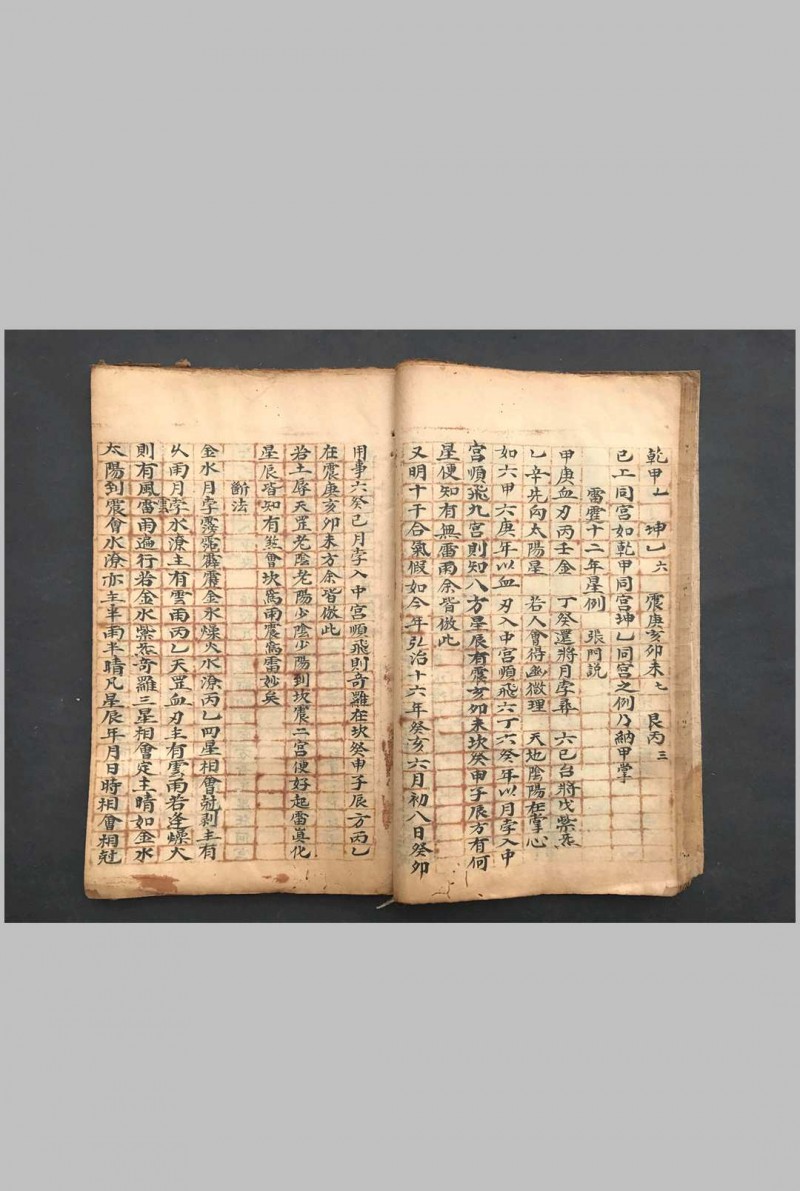 乾甲一 坤乙六 震庚亥卯未七 艮丙三
已上同宮如乾甲同宮坤乙同宮之例乃納甲掌
雷霆十二年星例 張阿説
甲庚血刃丙壬金 丁癸還將月孛尋 六己台將戊紫炁
乙辛先向太陽星 若人會得幽微理 天地陰陽在掌心
如六甲六庚年以血刃入中宮順飛六丁六癸年以月孛入中
宮順飛九宮則知八方星辰有震亥卯未坎癸申子辰方有何
星便知有無雷雨余皆倣此
又明十干合氣假如今年弘治十六年癸亥六月初八日癸卯
用事六癸已月孛入中宮順飛則奇羅在坎癸申子辰方丙乙
在震庚亥卯未方余皆倣此
若土孛天罡老陰老陽少陰少陽到坎震二宮便好起雷真化
星辰皆知有煞會坎為雨震為雷妙矣
斷法
金水月孛霧露霹靂金水燥火水潦丙乙四星相會尅剥主有
久雨月孛水潦主有雲雨丙乙天罡血刃主有雲雨若逢燥火
則有風雷雨過行若金水紫炁奇羅三星相會定主晴如金水
太陽到震會水潦亦主半雨半晴凡星辰年月日時相會相尅